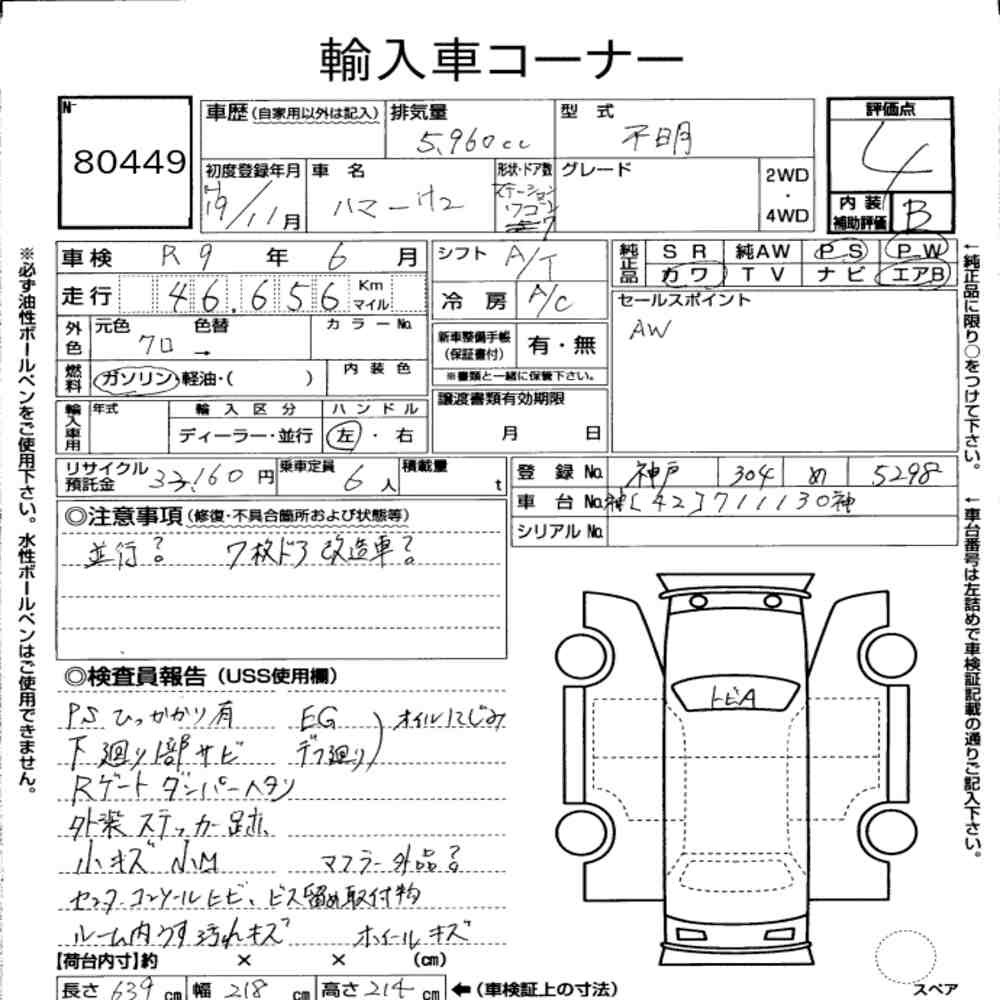 輸入車コーナー
No.
80449
車歴(自家用以外は記入)
排気量
5,960cc
型 式
不明
評価点
4
初度登録年月
H
19/11月
車 名
ハマーH2
形状・ドア数
ステーション
ワゴン
7
グレード
2WD
・
4WD
内装
補助評価
B
車検 R9年 6月
シフト A/T
純正品
SR 純AW PS PW
カワ TV ナビ エアB
走行 46,656 Km マイル
冷房 A/C
セールスポイント
AW
外色
元色 色替 カラーNo.
クロ →
新車整備手帳
(保証書付)
有・無
※書類と一緒に保管下さい。
燃料
ガソリン・軽油・( )
内装色
譲渡書類有効期限
月 日
輸入車用
年式 輸入区分 ハンドル
ディーラー・並行 左・右
リサイクル
預託金
33,160円
乗車定員 6人
積載量 t
登録No. 神戸 304 め 5298
車台No. 神[42]711130神
シリアルNo.
◎注意事項(修復・不具合箇所および状態等)
並行? 7枚ドア 改造車?
◎検査員報告(USS使用欄)
PSひっかかり有 EG オイルにじみ
下廻り部サビ デフ廻り
Rゲートダンパーヘタリ
外装 ステッカー跡
小キズ 小M マフラー外品?
センターコンソールヒビ、ビス留め取付物
ルーム内うす汚れキズ ホイールキズ
トビA
【荷台内寸】約 × × (cm)
長さ 639cm 幅 218cm 高さ 214cm ←(車検証上の寸法)
スペア
※必ず油性ボールペンをご使用下さい。水性ボールペンはご使用できません。
←純正品に限り○をつけて下さい。
←車台番号は左詰めで車検証記載の通りご記入下さい。